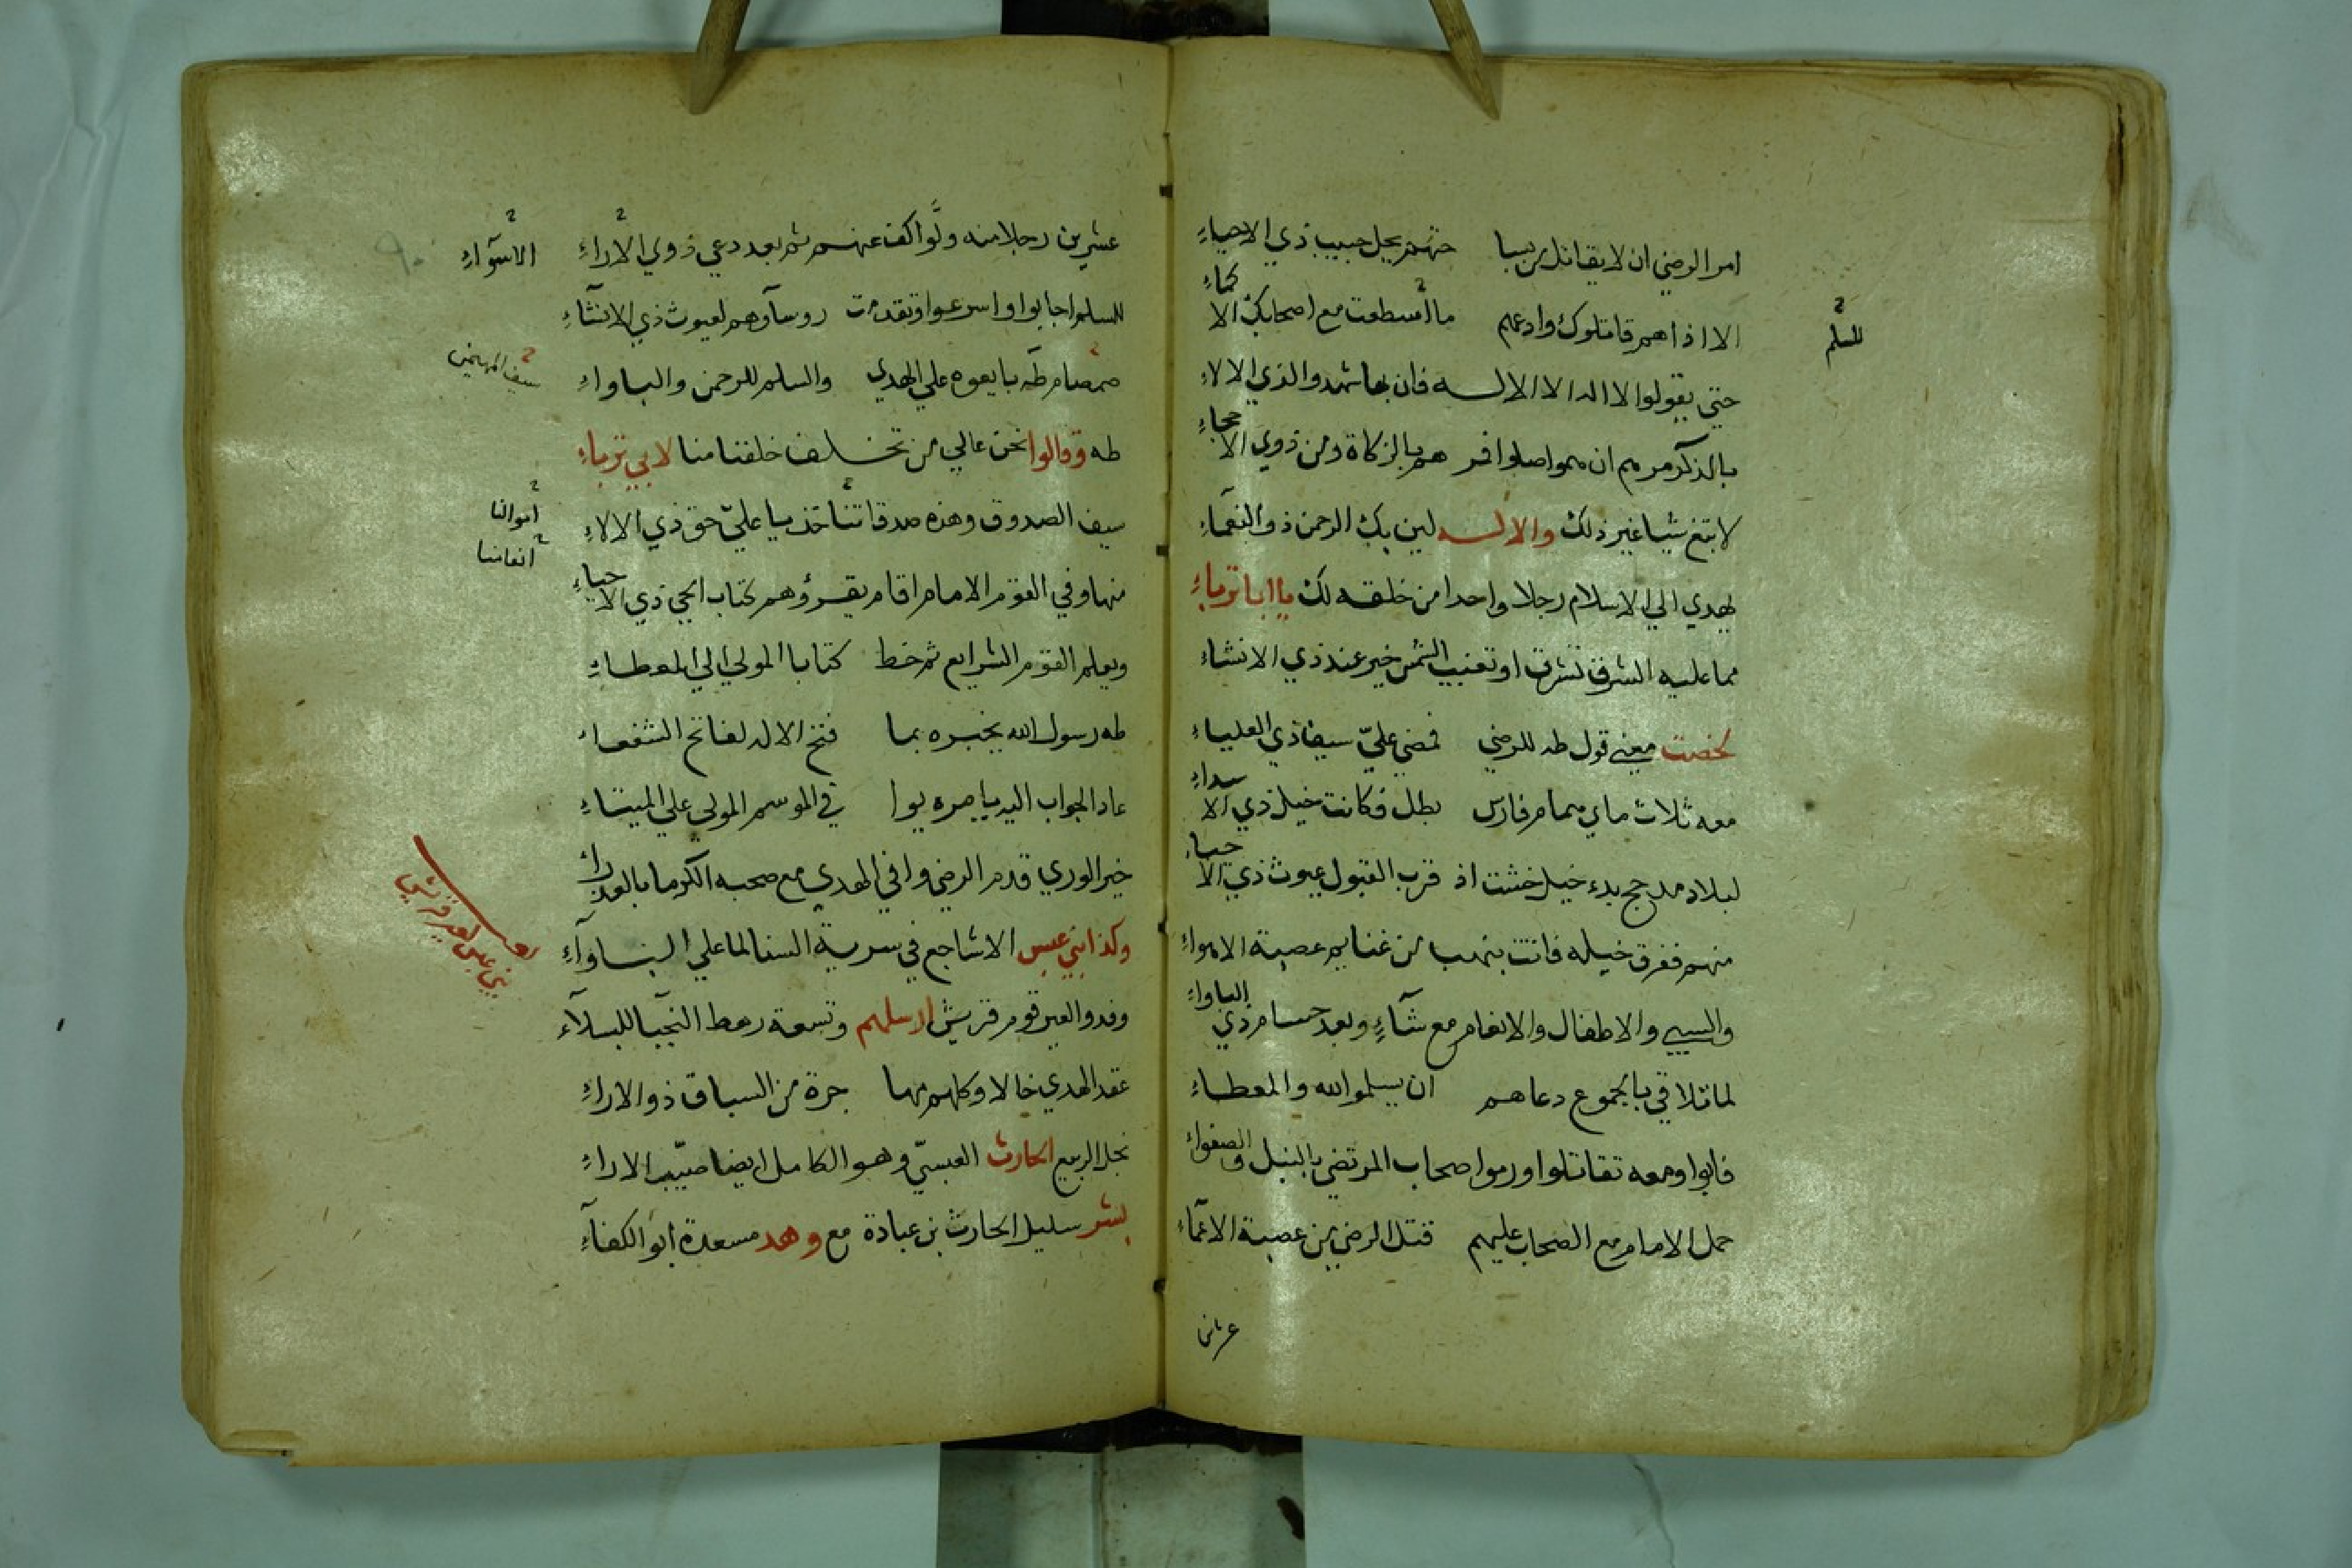 امر الرضي ان لا يقاتل من سبا حتهم بجل حبيب ذي الاحياءِ
الا اذا هم قاتلوك وادعهم ما اسطعت مع اصحابك الاكماءِ
للسلم
حتى يقولوا لا اله الا الاله فان بها شهدوا لذي الالاءِ
بالذكر مرهم ان هموا صلوا فمرهم بالزكاة ومن ذوي الاحجاءِ
لا تبتغ شيا غير ذلك والاله لين بك الرحمن ذو النعماءِ
يهدي الي الاسلام رجلا واحدا من خلقه لك يا ابا ترباءِ
مما عليه الشرق تشرق او تغيب الشمس خير عند ذي الانشاء
لخصت معني قول طه للرضي فمضي عليّ سيف ذي العلياءِ
معه ثلاث ماي همام فارس بطل فكانت خيل ذي الاسداءِ
لبلاد مدحج بدء خيل خشت اذ قرب القبول عيوث ذي الاحياء
منهم ففرق خيله فاتت بنهب من غنايم عصبة الاهواءِ
والسبي والاطفال والانعام مع شآءٍ وبعد حسام ذي الباواءِ
لما تلاقي بالجموع دعاهم ان يسلموا لله والمعطاءِ
فابوا ومعه تقاتلوا ورموا صحاب المرتضي بالنبل والصفواءِ
حمل الامام مع الصحاب عليهم قتل الرضي من عصبة الاغماءِ
عشرين
عشرين رجلا منه ولّوا كف عنهم ثم بعد دعي ذوي الاراءِ
الاسوآءِ
للسلم اجابوا واسرعوا وتقدمت روسآوهم لعيوث ذي الانشاءِ
صمصام طه بايعوه علي الهدي والسلم للرحمن والباواءِ
سيف المهيمن
طه وقالوا نحن عالي من تخلف خلفنا منا لابي ترباءِ
سيف الصدوق وهذه صدقاتنا خذ يا عليّ حق ذي الالاءِ
اموالنا
انعامنا
منها وفي القوم الامام اقام يقرؤهم كتاب الحي ذي الاحياءِ
ويعلم القوم الشرايع ثم خط كتابا المولي الي المعطاءِ
طه رسول الله يخبره بما فتح الاله لفاتح الشفعاء
عاد الجواب اليه يامره يوا في الموسم المولي علي الميتاءِ
خير الوري قدم الرضي وافي الهدي مع صحبه الكرما بالعدراءِ
وكذا بني عبس الاشاجع في سرية السنا لما علي البناوآءِ
بني عبس لعير قريش
وفدوا لعير قوم قريش ارسلهم وتسعة رهط النجبا للبسلآء
عقد الهدي خالا وكلهم مها جرة من السباق ذو الاراءِ
نجل الربيع الحارث العبسيّ وهو الكامل ايضا صيّب الاراءِ
بشر سليل الحارث بن عبادة مع وهد مسعدة ابو الكفآءِ